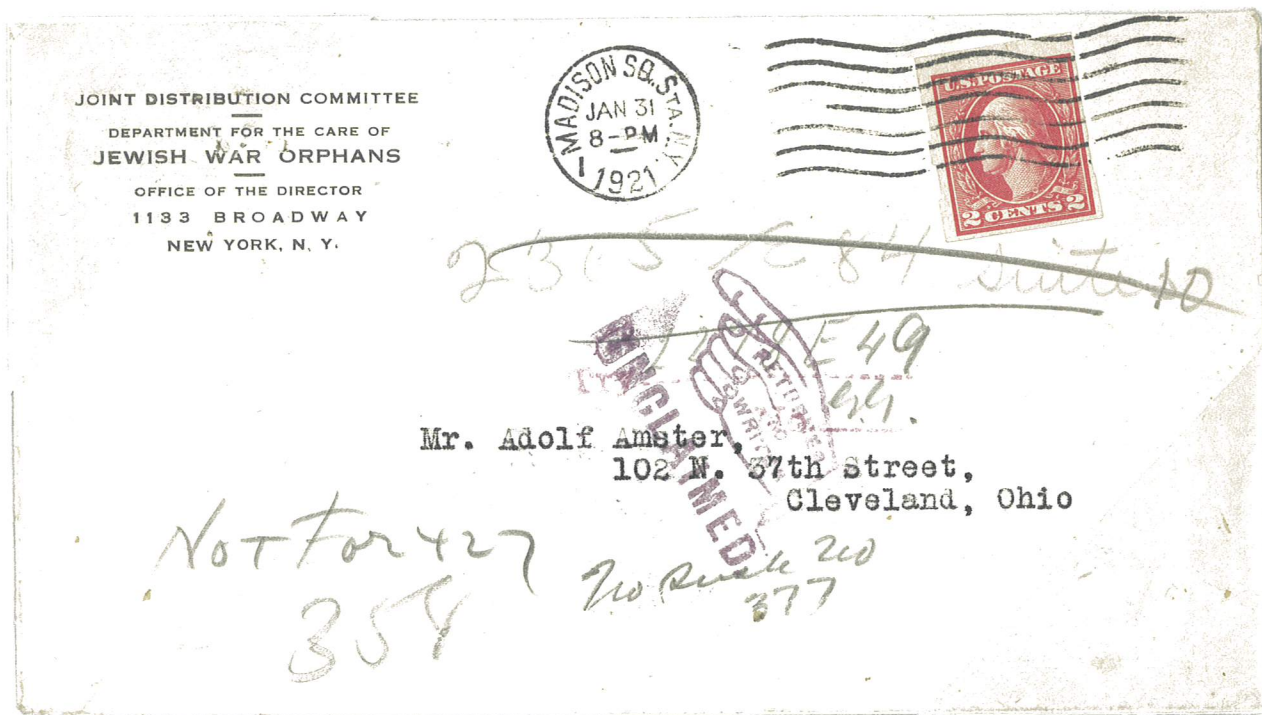 JOINT DISTRIBUTION COMMITTEE
DEPARTMENT FOR THE CARE OF
JEWISH WAR ORPHANS
OFFICE OF THE DIRECTOR
1133 BROADWAY
NEW YORK, N. Y.
MADISON SQ. STA. N.Y.
JAN 31
8-PM
1921
1
U.S. POSTAGE
2 CENTS 2
2315 E 84 Suite 10
E 49
UNCLAIMED
RETURNED
TO
WRITER
Mr. Adolf Amster,
102 N. 37th Street,
Cleveland, Ohio
NOT For 427
358
No Such No
377